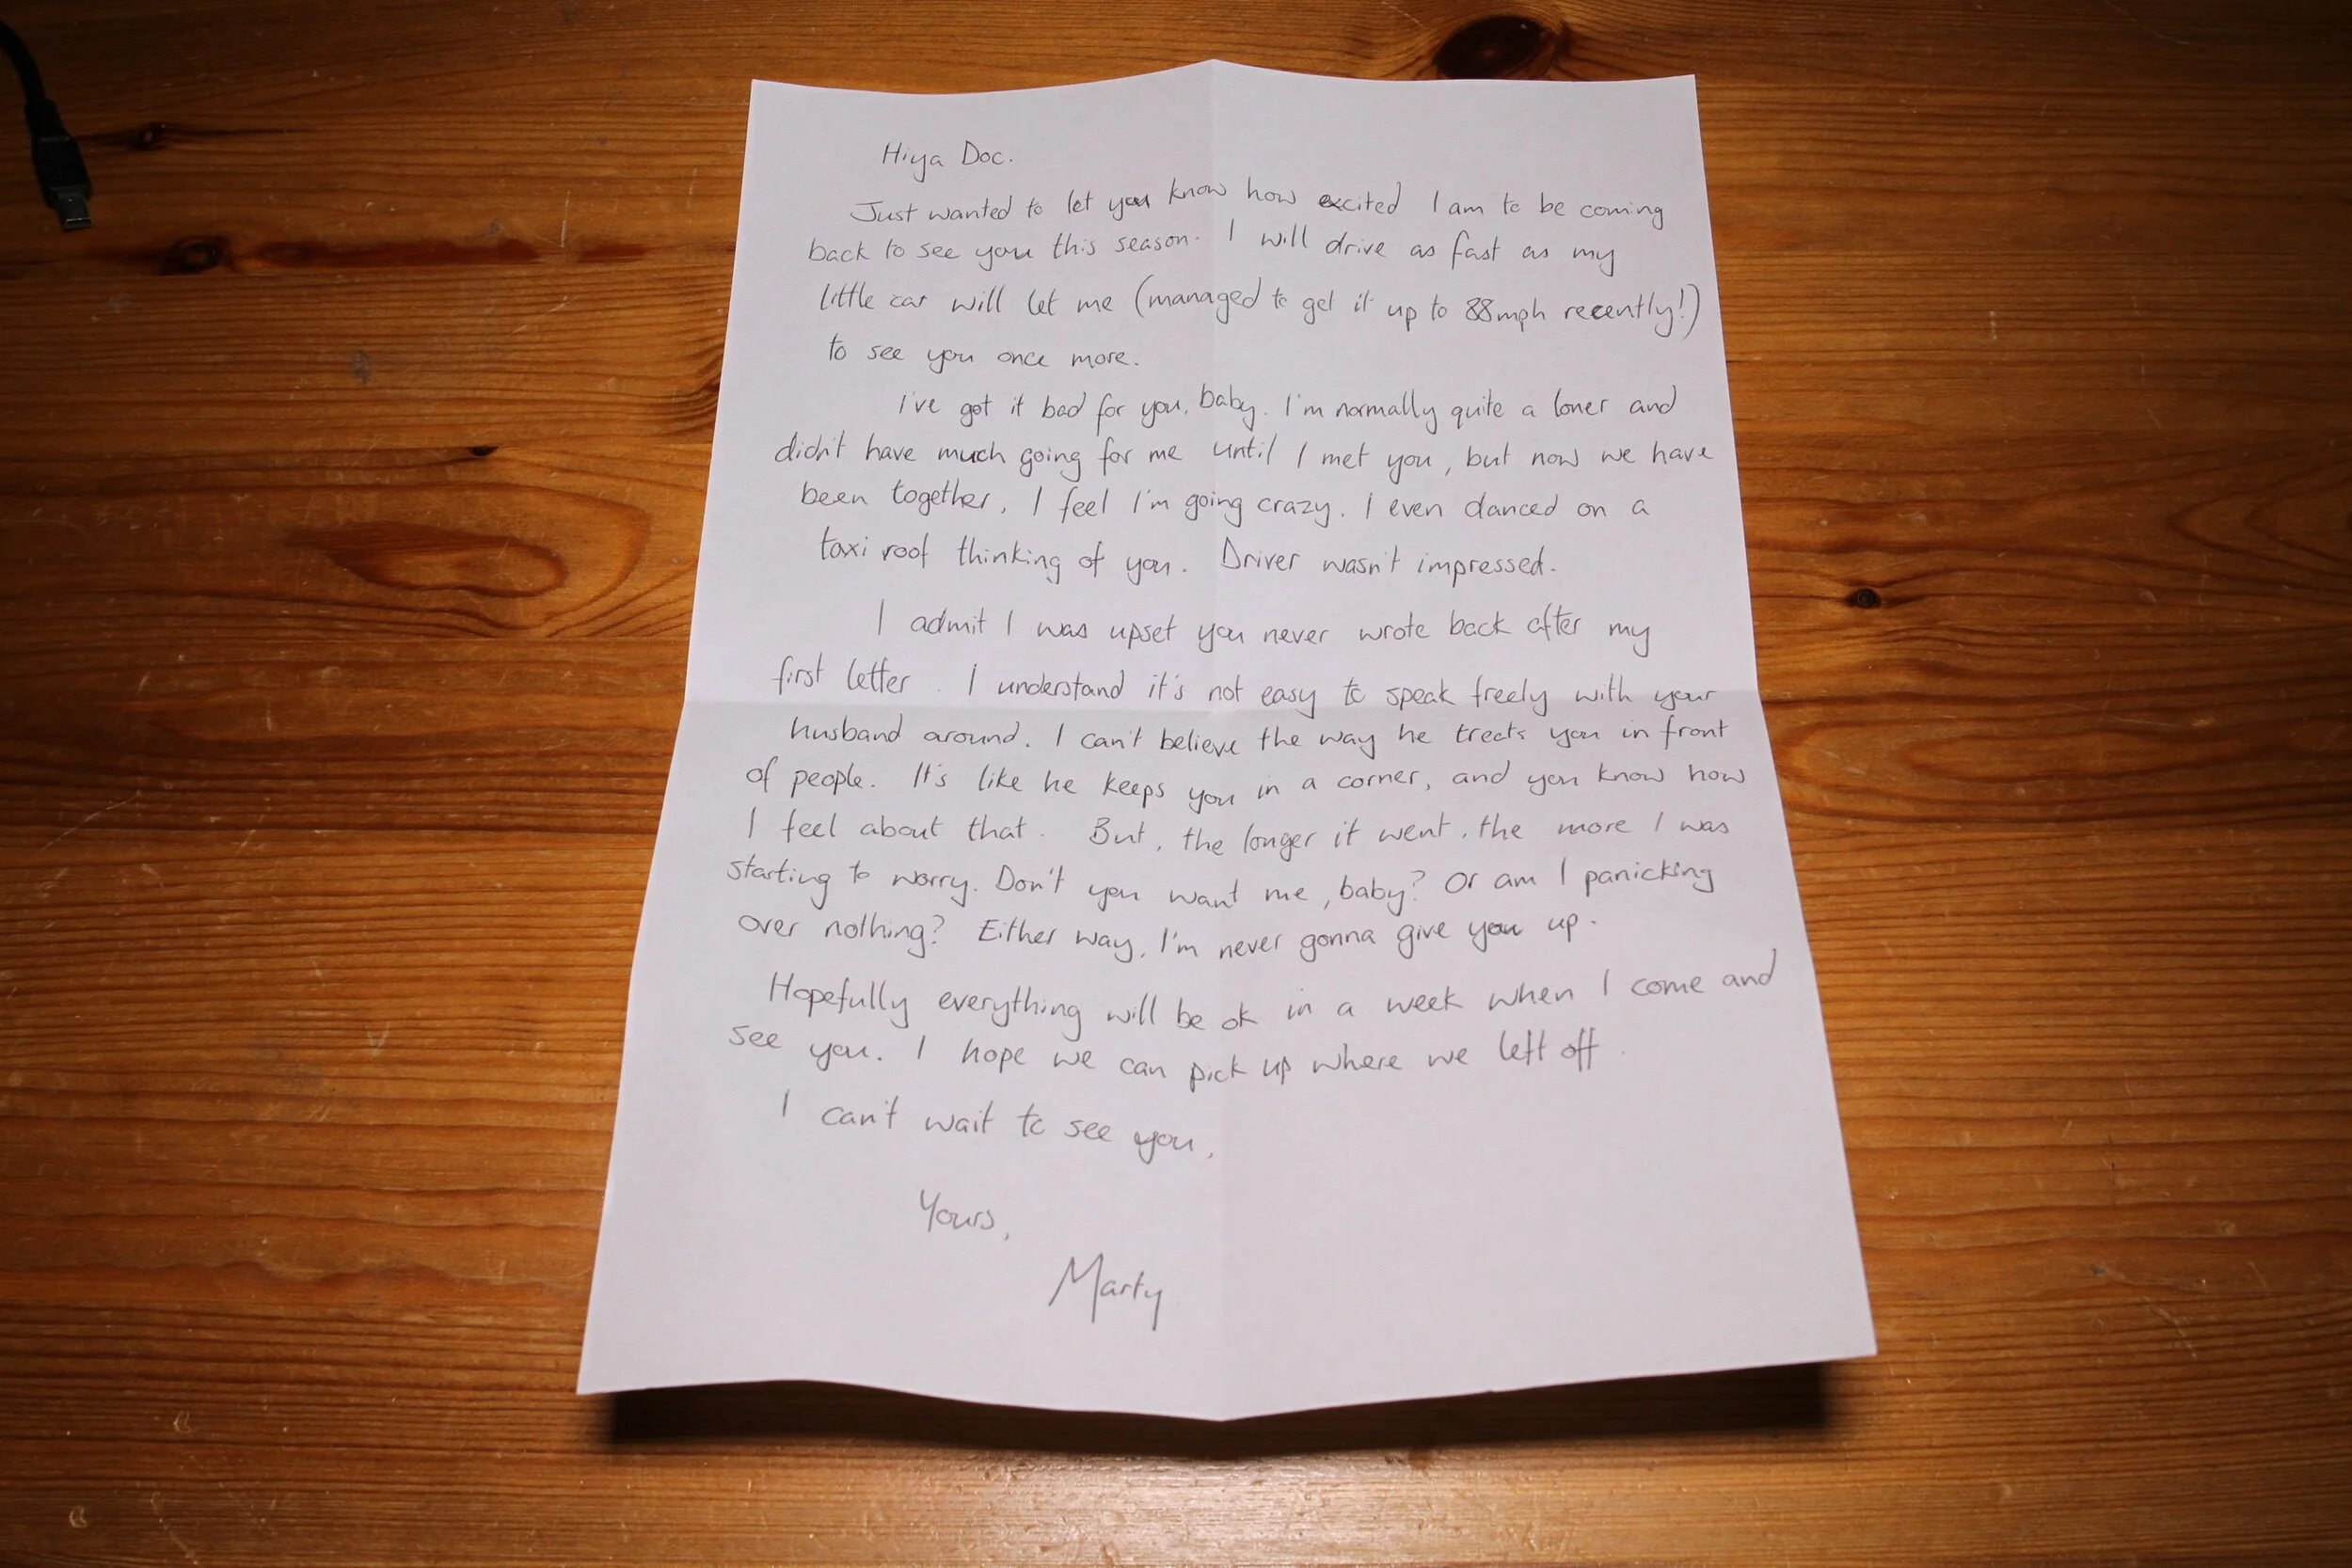 Hiya Doc.
Just wanted to let you know how excited I am to be coming
back to see you this season. I will drive as fast as my
little car will let me (managed to get it up to 88mph recently!)
to see you once more.
I've got it bad for you, baby. I'm normally quite a loner and
didn't have much going for me until I met you, but now we have
been together, I feel I'm going crazy. I even danced on a
taxi roof thinking of you. Driver wasn't impressed.
I admit I was upset you never wrote back after my
first letter. I understand it's not easy to speak freely with your
husband around. I can't believe the way he treats you in front
of people. It's like he keeps you in a corner, and you know how
I feel about that. But, the longer it went, the more I was
starting to worry. Don't you want me, baby? Or am I panicking
over nothing? Either way, I'm never gonna give you up.
Hopefully everything will be ok in a week when I come and
see you. I hope we can pick up where we left off.
I can't wait to see you,
Yours,
Marty